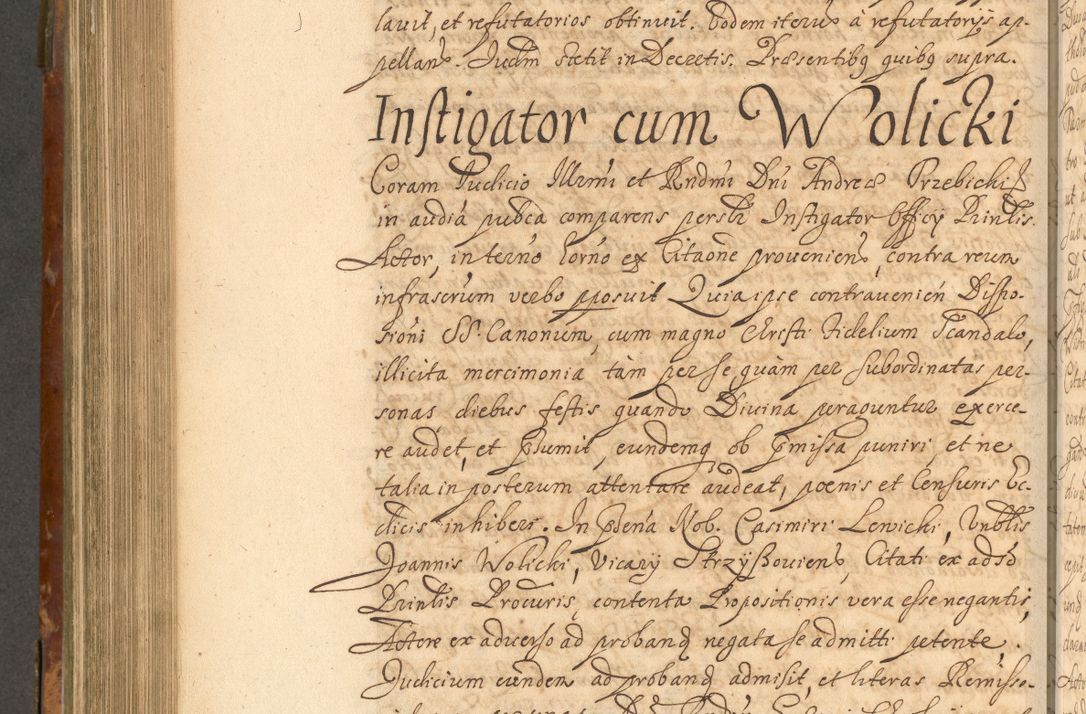 lauit, et refutatorios obtinuit. Eodem iterus à refutatorijs ap-
pellans. Judm stetit in Decretis. Præsentibq quibq supra.
Instigator cum Wolicki
Coram Judicio Illrmi et Rndmi Dni Andreæ Przebicki
in audia pubca comparens persli Instigator Officy Prinlis.
Actor, in terno Eorno ex Citaone proueniens, contra reum
infrascrum verbo pposuit Quia ipse contrauenien Dispo-
sioni SS. Canonum, cum magno Christi fidelium Scandalo,
illicita mercimonia tàm per se quàm per subordinatas per-
sonas diebus festis quando Diuina peraguntur exerce-
re audet, et psumit, eundemq ob pmissa puniri, et ne
talia in posterum attentare audeat, poenis et Censuris Ec-
clicis inhiberi. In pdena Nob. Casimiri Lewicki, Vnblis
Joannis Wolicki, Vicarij Strzyssouiens, Citati ex adsò
Prinlis Procuris, contenta Propositionis vera esse negantis,
Actore ex aduerso ad proband negata se admitti petente,
Judicium eundem ad proband admisit, et literas Remisso-